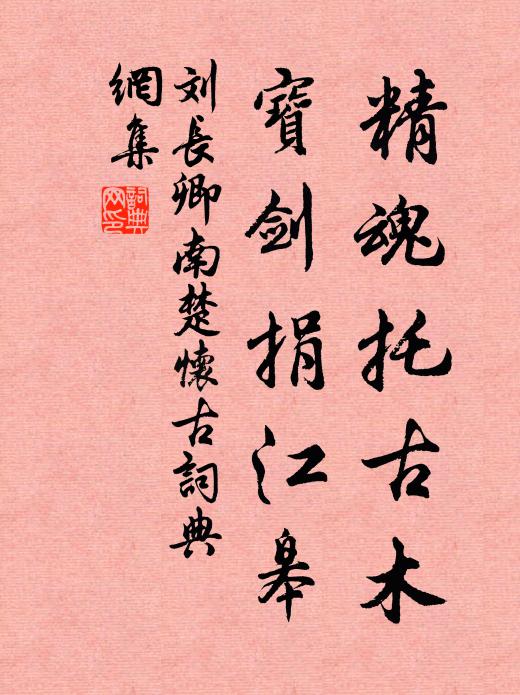 精魂托古木
寶劍捐江皋
刘長卿南楚懷古詞典
網集
詞典
网印